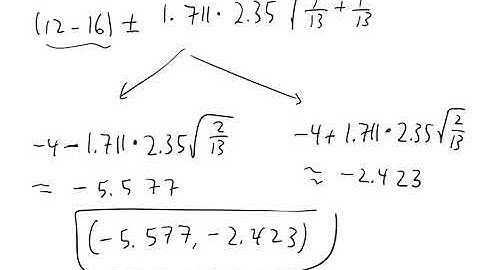 (12 - 16) ± 1.711 · 2.35 √(1/13 + 1/13)
-4 - 1.711 · 2.35 √(2/13)
≈ -5.577
-4 + 1.711 · 2.35 √(2/13)
≈ -2.423
(-5.577, -2.423)